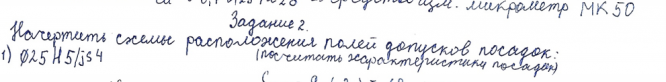 изм. микрометр МК 50
Задание 2.
Начертить схемы расположения полей допусков посадок:
1) Ø25 H5/js4 (посчитать характеристики посадок)